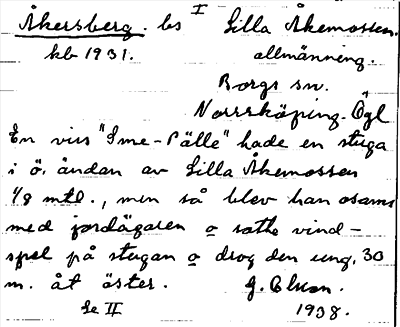 I
Åkersberg. bs Lilla Åkemossen.
kb 1931. allmänning.
Borgs sn.
Norrköping. Ögl
En viss "Sme-Pälle" hade en stuga
i ö. ändan av Lilla Åkemossen
1/8 mtl., men så blev han osams
med jordägaren o satte vind-
spel på stugan o drog den ung. 30
m. åt öster. G. Olson.
Se II 1938.